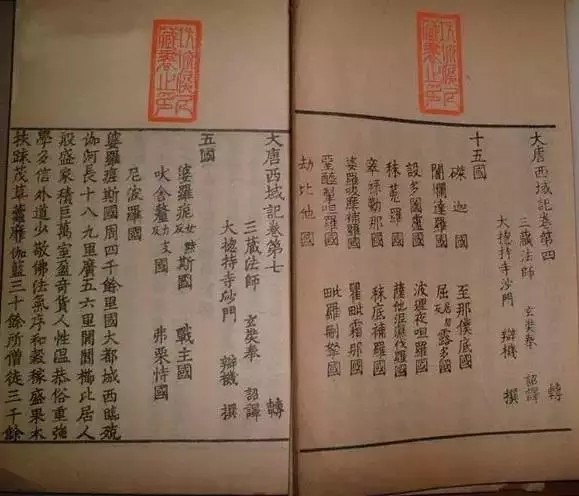 大唐西域記卷第四 轉
三藏法師 玄奘奉 詔譯
大揔持寺沙門 辯機 撰
十五國
磔迦國 至那僕底國
闍爛達羅國 屈居勿反露多國
設多圖盧國 波理夜呾羅國
秣菟羅國 薩他泥濕伐羅國
窣祿勤那國 秣底補羅國
婆羅吸摩補羅國 瞿毗霜那國
堊醯掣呾羅國 毗羅刪拏國
劫比他國
大唐西域記卷第七 轉
三藏法師 玄奘奉 詔譯
大揔持寺沙門 辯機 撰
五國
婆羅痆女黠反斯國 戰主國
吠舍釐力支反國 弗栗恃國
尼波羅國
婆羅痆斯國周四千餘里國大都城西臨殑
伽河長十八九里廣五六里閭閻櫛比居人
殷盛家積巨萬室盈奇貨人性溫恭俗重強
學多信外道少敬佛法氣序和穀稼盛果木
扶踈茂草靃靡伽藍三十餘所僧徒三千餘